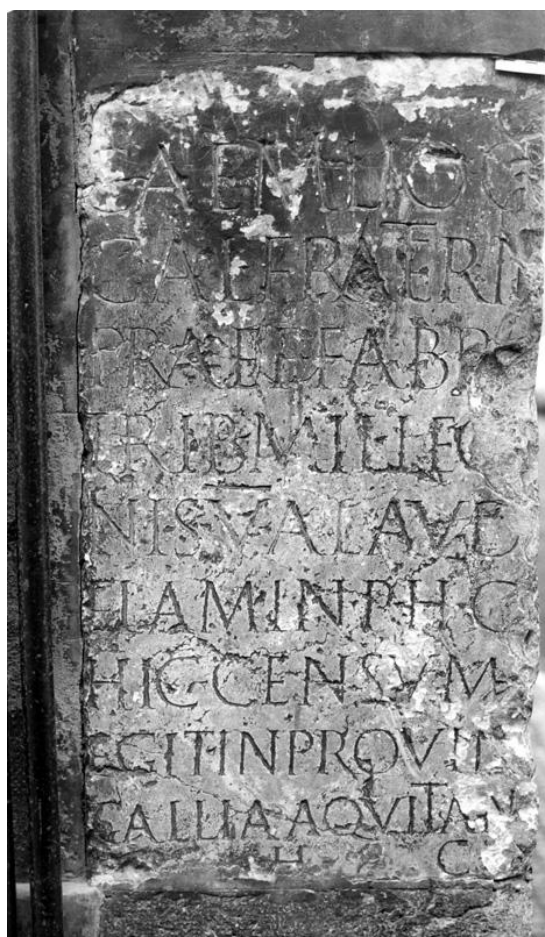 L·AEMILIO·C
GAL·FRATERN
PRAEF·FABR
TRIB·MIL·LEG
NIS·V·ALAVD
FLAMIN·P·H·C
HIC·CENSVM
EGIT·IN·PROVIN
GALLIA AQVITAN
H C